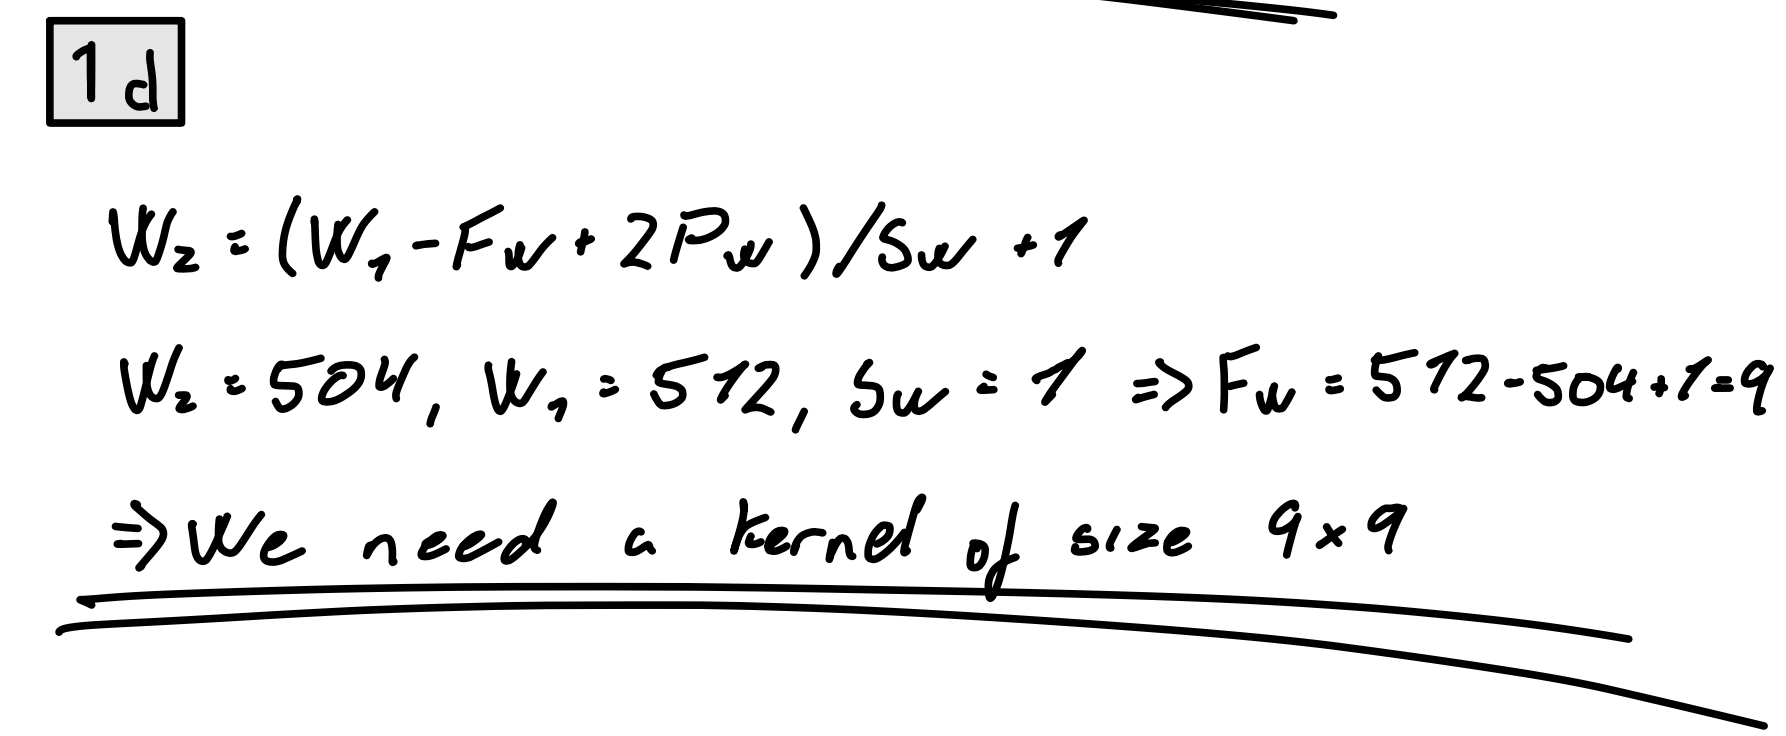 1d
W₂ = (W₁ - F_W + 2P_W)/S_W + 1
W₂ = 504, W₁ = 512, S_W = 1 => F_W = 512-504+1=9
=> We need a kernel of size 9x9